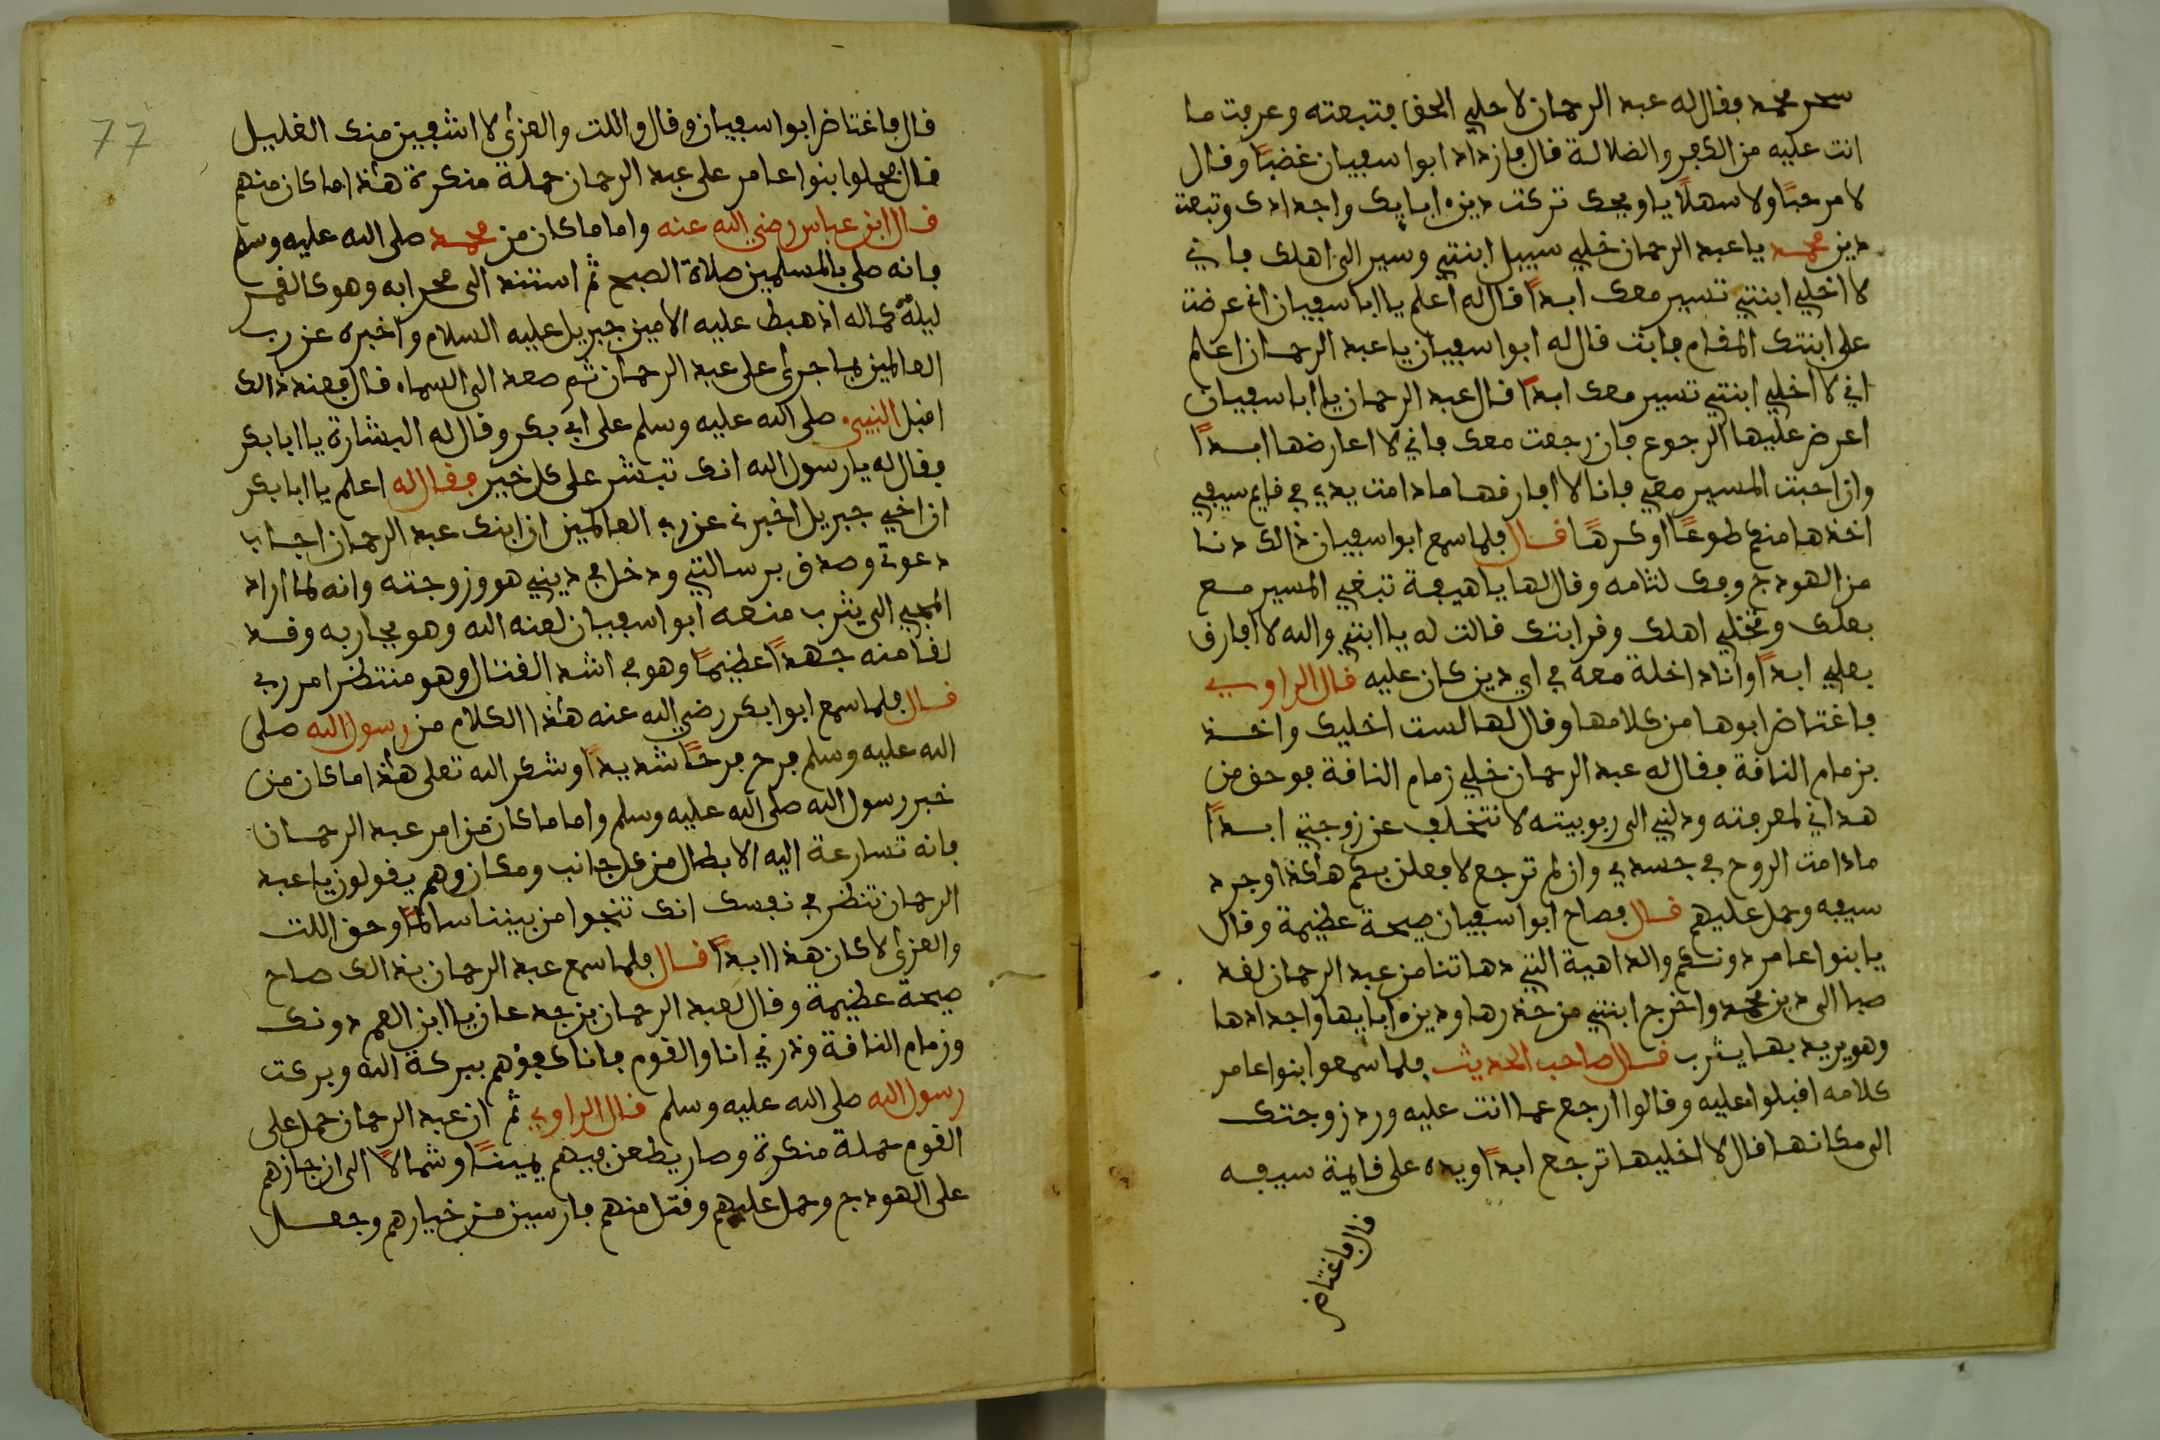 سحر محمد فقال له عبد الرحمان لاح لي الحق فتبعته وعرفت ما
انت عليه من الكفر والضلالة قال فازداد ابوا سفيان غضبًا وقال
لا مرحبًا ولا سهلًا يا ويحك تركت دين ابايك واجدادك وتبعت
دين محمد يا عبد الرحمان خلي سبيل ابنتي وسير الى اهلك فاني
لا اخلي ابنتي تسير معك ابدًا قال له اعلم يا ابا سفيان اني عرضت
على ابنتك المقام فابت قال له ابوا سفيان يا عبد الرحمان اعلم
اني لا اخلي ابنتي تسير معك ابدًا قال عبد الرحمان يا ابا سفيان
اعرض عليها الرجوع فان رجعت معك فاني لا اعارضها ابدًا
وان احبت المسير معي فانا لا افارفها مادامت يدي في قايم سيفي
اخذها منكم طوعًا اوكرهًا قال فلما سمع ابوا سفيان ذالك دنا
من الهودج وفك لثامه وقال لها يا هيفة تبغي المسير مع
بعلك وتخلي اهلك وقرابتك قالت له يا ابتي والله لا افارق
بعلي ابدًا وانا داخلة معه في اي دين كان عليه قال الراوي
فاغتاض ابوها من كلامها وقال لها لست اخليك واخذ
بزمام النافة فقال له عبد الرحمان خلي زمام النافة فوحق من
هداني لمعرفته ودلني الى ربوبيته لا نتخلف عن زوجتي ابدًا
مادامت الروح في جسدي وان لم ترجع لافعلن بكم هاكذا وجرد
سيفه وحمل عليهم قال فصاح ابوا سفيان صيحة عظيمة وقال
يا بنوا عامر دونكم والداهية التي دهاتنا من عبد الرحمان لقد
صبا الى دين محمد واخرج ابنتي من خذرها ودين ابايها واجدادها
وهو يريد بها يثرب قال صاحب الحديث فلما سمعوا بنوا عامر
كلامه اقبلوا عليه وقالوا ارجع عما انت عليه ورد زوجتك
الى مكانها قال لا اخليها ترجع ابدًا ويده على قايمة سيفه
قال فاغتاض
77
قال فاغتاض ابوا سفيان وقال واللت والعزى لا اشفين منك الغليل
قال فحملوا بنوا عامر على عبد الرحمان حملة منكرة هذا ما كان منهم
قال ابن عباس رضي الله عنه واما ما كان من محمد صلى الله عليه وسلم
فانه صلى بالمسلمين صلاة الصبح ثم استند الى محرابه وهو كالقمر
ليلة كماله اذ هبط عليه الامين جبريل عليه السلام واخبره عن رب
العالمين بما جرى على عبد الرحمان ثم صعد الى السماء قال فعند ذالك
اقبل النبيء صلى الله عليه وسلم على ابي بكر وقال له البشارة يا ابا بكر
فقال له يا رسول الله انك تبشر على كل خير فقال له اعلم يا ابا بكر
ان اخي جبريل اخبرني عن رب العالمين ان ابنك عبد الرحمان اجاب
دعوتي وصدق برسالتي ودخل في ديني هو وزوجته وانه لما اراد
المجي الى يثرب منعه ابوا سفيان لعنه الله وهو يحاربه وقد
لقا منه جهدًا عظيمًا وهو في اشد القتال وهو منتظر امر ربي
قال فلما سمع ابوا بكر رضي الله عنه هذا الكلام من رسول الله صلى
الله عليه وسلم فرح فرحًا شديدًا وشكر الله تعلى هذا ما كان من
خبر رسول الله صلى الله عليه وسلم واما ما كان من امر عبد الرحمان
فانه تسارعة اليه الابطال من كل جانب ومكان وهم يقولون يا عبد
الرحمان تنظر في نفسك انك تنجوا من بيننا سالمًا وحق اللت
والعزى لا كان هذا ابدًا قال فلما سمع عبد الرحمان بذالك صاح
صيحة عظيمة وقال لعبد الرحمان بن جدعان يا ابن العم دونك
وزمام النافة وذرني انا والقوم فانا كفؤهم ببركة الله وبركت
رسول الله صلى الله عليه وسلم قال الراوي ثم ان عبد الرحمان حمل على
القوم حملة منكرة وصار يطعن فيهم يمينًا وشمالًا الى ان جازهم
على الهودج وحمل عليهم وقتل منهم فارسين من خيارهم وجعل